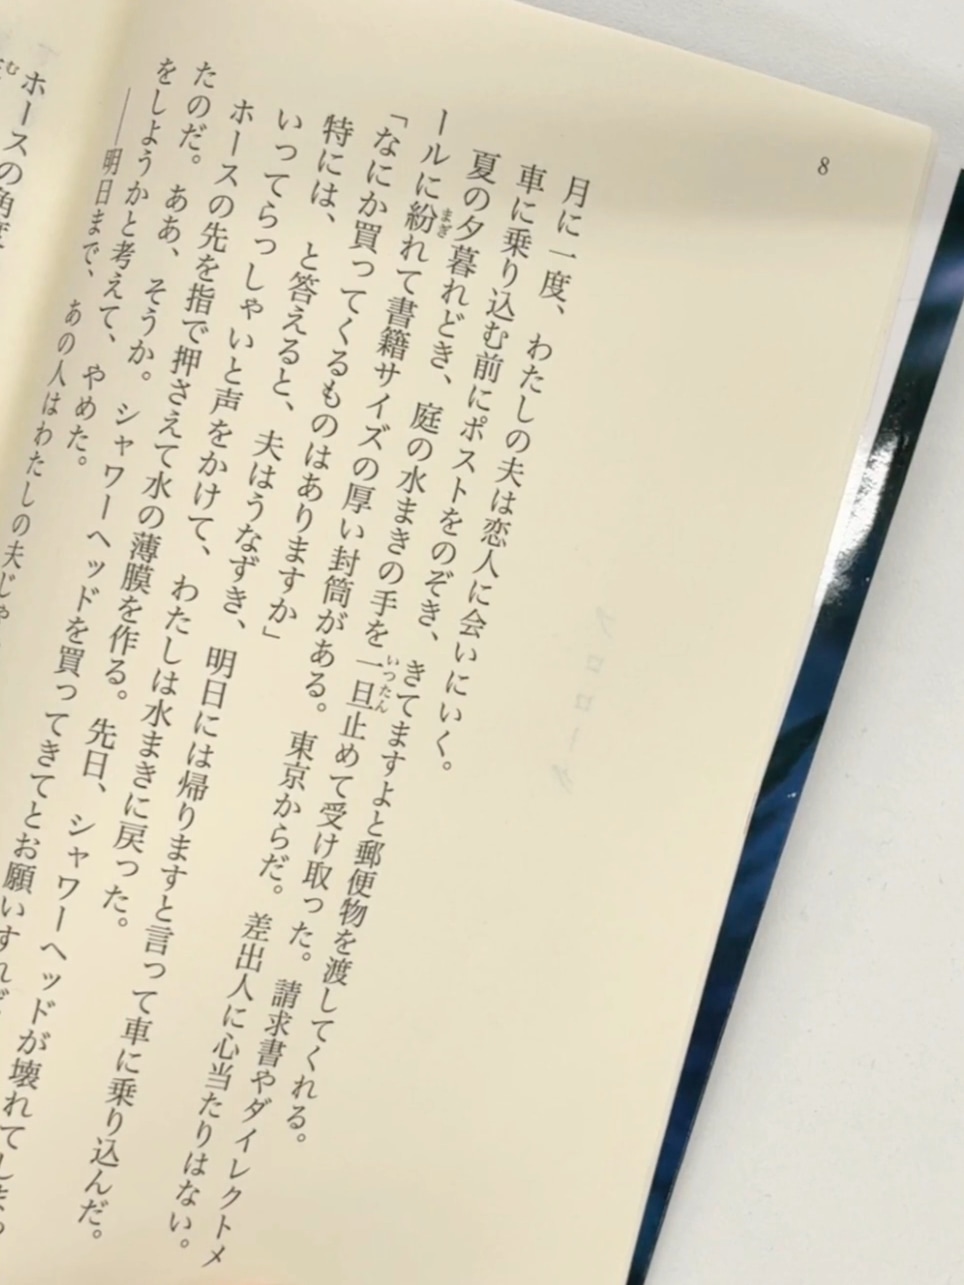 8
月に一度、わたしの夫は恋人に会いにいく。
車に乗り込む前にポストをのぞき、きてますよと郵便物を渡してくれる。
夏の夕暮れどき、庭の水まきの手を一旦止めて受け取った。請求書やダイレクトメ
ールに紛れて書籍サイズの厚い封筒がある。東京からだ。差出人に心当たりはない。
「なにか買ってくるものはありますか」
特には、と答えると、夫はうなずき、明日には帰りますと言って車に乗り込んだ。
いってらっしゃいと声をかけて、わたしは水まきに戻った。
ホースの先を指で押さえて水の薄膜を作る。先日、シャワーヘッドが壊れてしまっ
たのだ。ああ、そうか。シャワーヘッドを買ってきてとお願いすれば
をしようかと考えて、やめた。
――明日まで、あの人はわたしの夫じゃ
ホースの角度